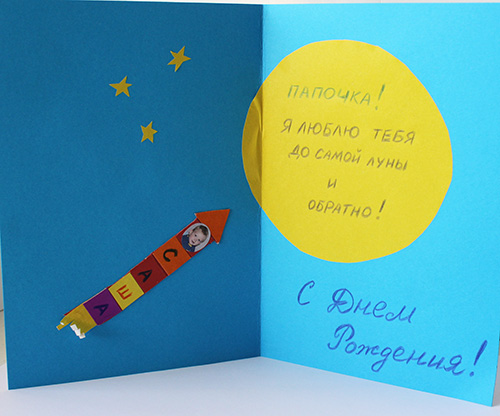 САША
ПАПОЧКА!
Я ЛЮБЛЮ ТЕБЯ
ДО САМОЙ ЛУНЫ
И
ОБРАТНО!
С Днем
Рождения!